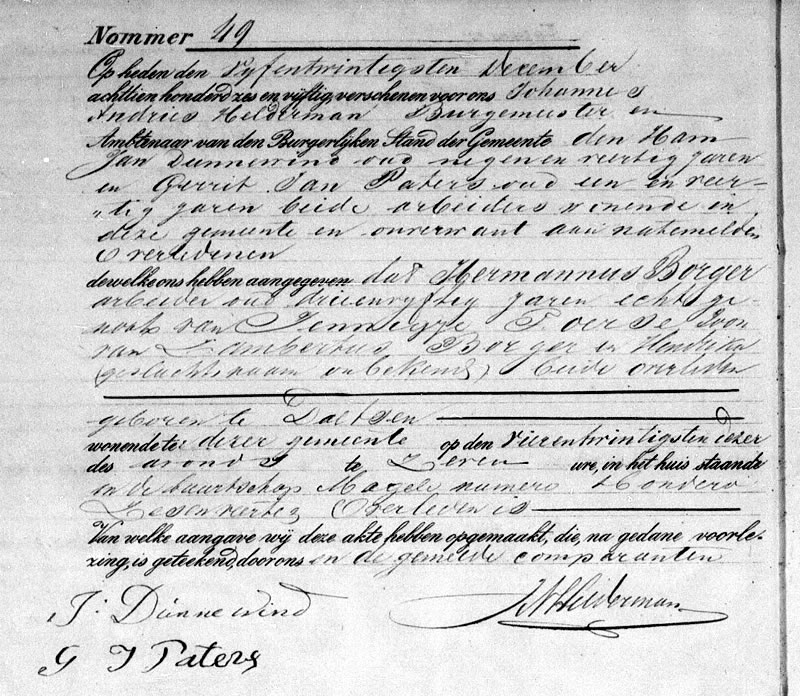 Nommer 49
Op heden den vyfentwintigsten December
achttien honderd zes en vijftig, verschenen voor ons Johannes
Andries Helderman Burgemeester en
Ambtenaar van den Burgerlijken Stand der Gemeente den Ham
Jan Dunnewind oud negen en veertig jaren
en Gerrit Jan Paters oud een en veer-
tig jaren beide arbeiders wonende in
deze gemeente en onverwant aan natemelden
Overledenen
dewelke ons hebben aangegeven dat Hermannus Borger
arbeider oud drieenvyftig jaren echtge-
noot van Jennigje Boerse Zoon
van Lambertus Borger en Hendrika
(geslachtsnaam onbekend) beide overleden
geboren te Dalfsen
wonende te: dezer gemeente op den vierentwintigsten dezer
des avonds te Zeven ure, in het huis staande
in de buurtschap Magele numero Honderd
Zesenveertig Overleden is
Van welke aangave wij deze akte hebben opgemaakt, die, na gedane voorle-
zing, is geteekend, door ons en de gemelde comparanten
J: Dunnewind
JAHelderman
G J Paters